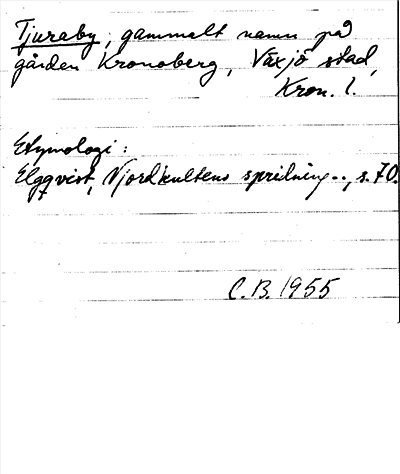 Tjuraby, gammalt namn på
gården Kronoberg, Växjö stad,
Kron. l.
Etymologi:
Elgqvist, Njordkultens spridning.., s. 70.
C.B. 1955